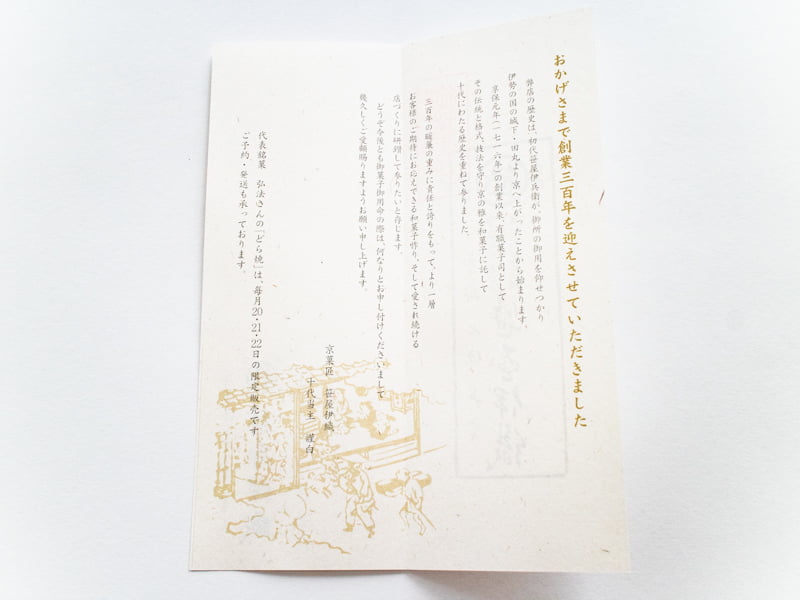 おかげさまで創業三百年を迎えさせていただきました
弊店の歴史は、初代笹屋伊兵衛が、御所の御用を仰せつかり
伊勢の国の城下・田丸より京へ上がったことから始まります。
享保元年(一七一六年)の創業以来、有職菓子司として
その伝統と格式、技法を守り京の雅を和菓子に託して
十代にわたる歴史を重ねて参りました。
三百年の暖簾の重みに責任と誇りをもって、より一層
お客様のご期待にお応えできる和菓子作り、そして愛され続ける
店づくりに研鑽して参りたいと存じます。
どうぞ今後とも御菓子御用命の際は、何なりとお申し付けくださいまして
幾久しくご愛顧賜りますようお願い申し上げます。
京菓匠 笹屋伊織
十代当主 謹白
代表銘菓 弘法さんの「どら焼」は、毎月20・21・22日の限定販売です
ご予約・発送も承っております。